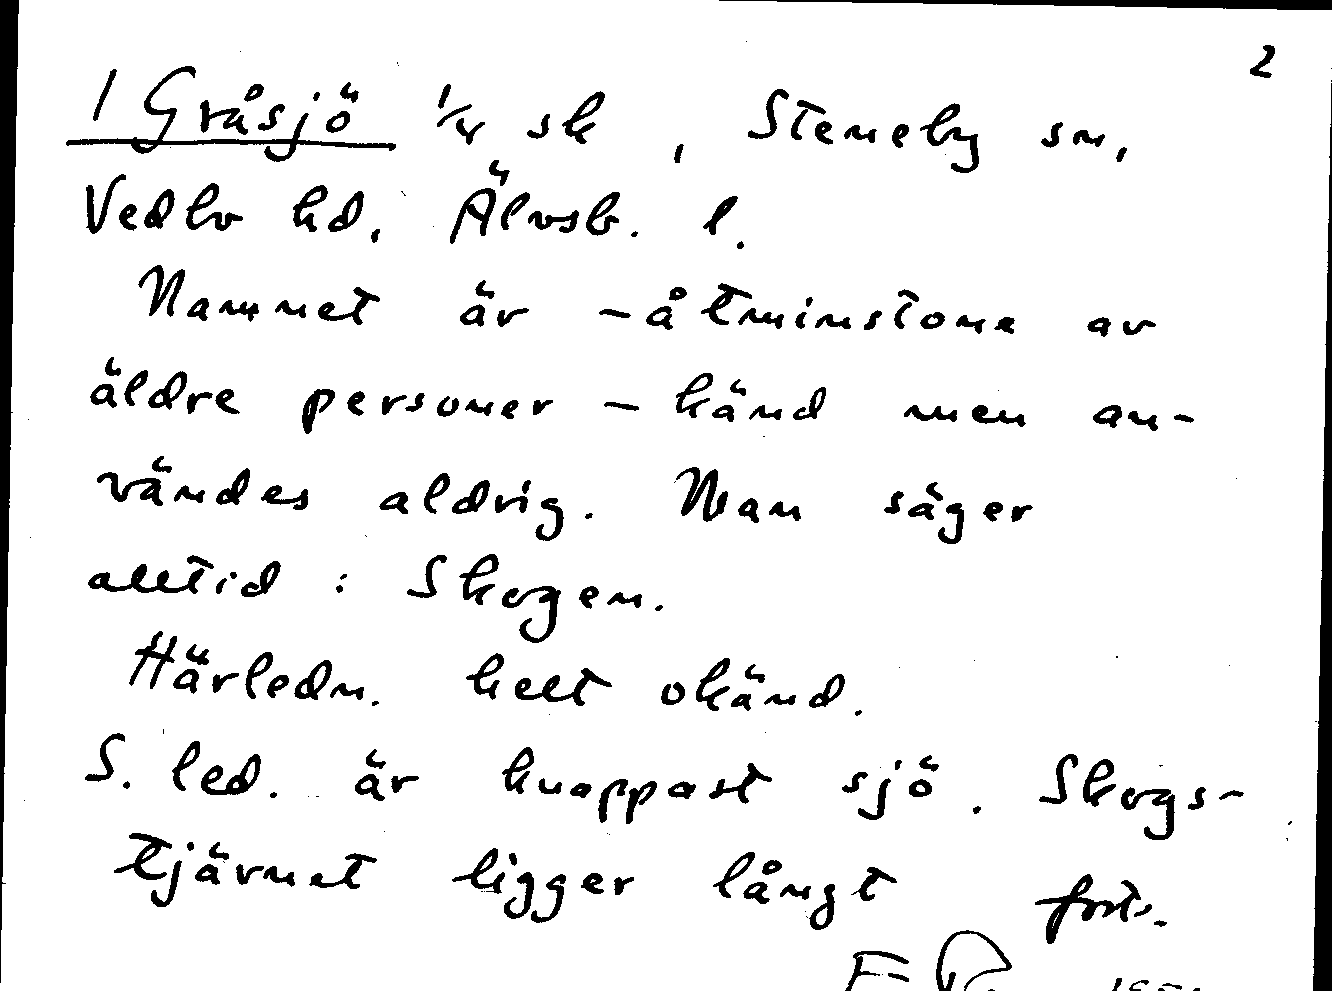 2
1 Gråsjö 1/4 sk, Steneby sn,
Vedbo hd. Älvsb. l.
Namnet är - åtminstone av
äldre personer - känd men an-
vändes aldrig. Man säger
alltid: Skogen.
Härledn. helt okänd.
S. led. är knappast sjö. Skogs-
tjärnet ligger långt forts.